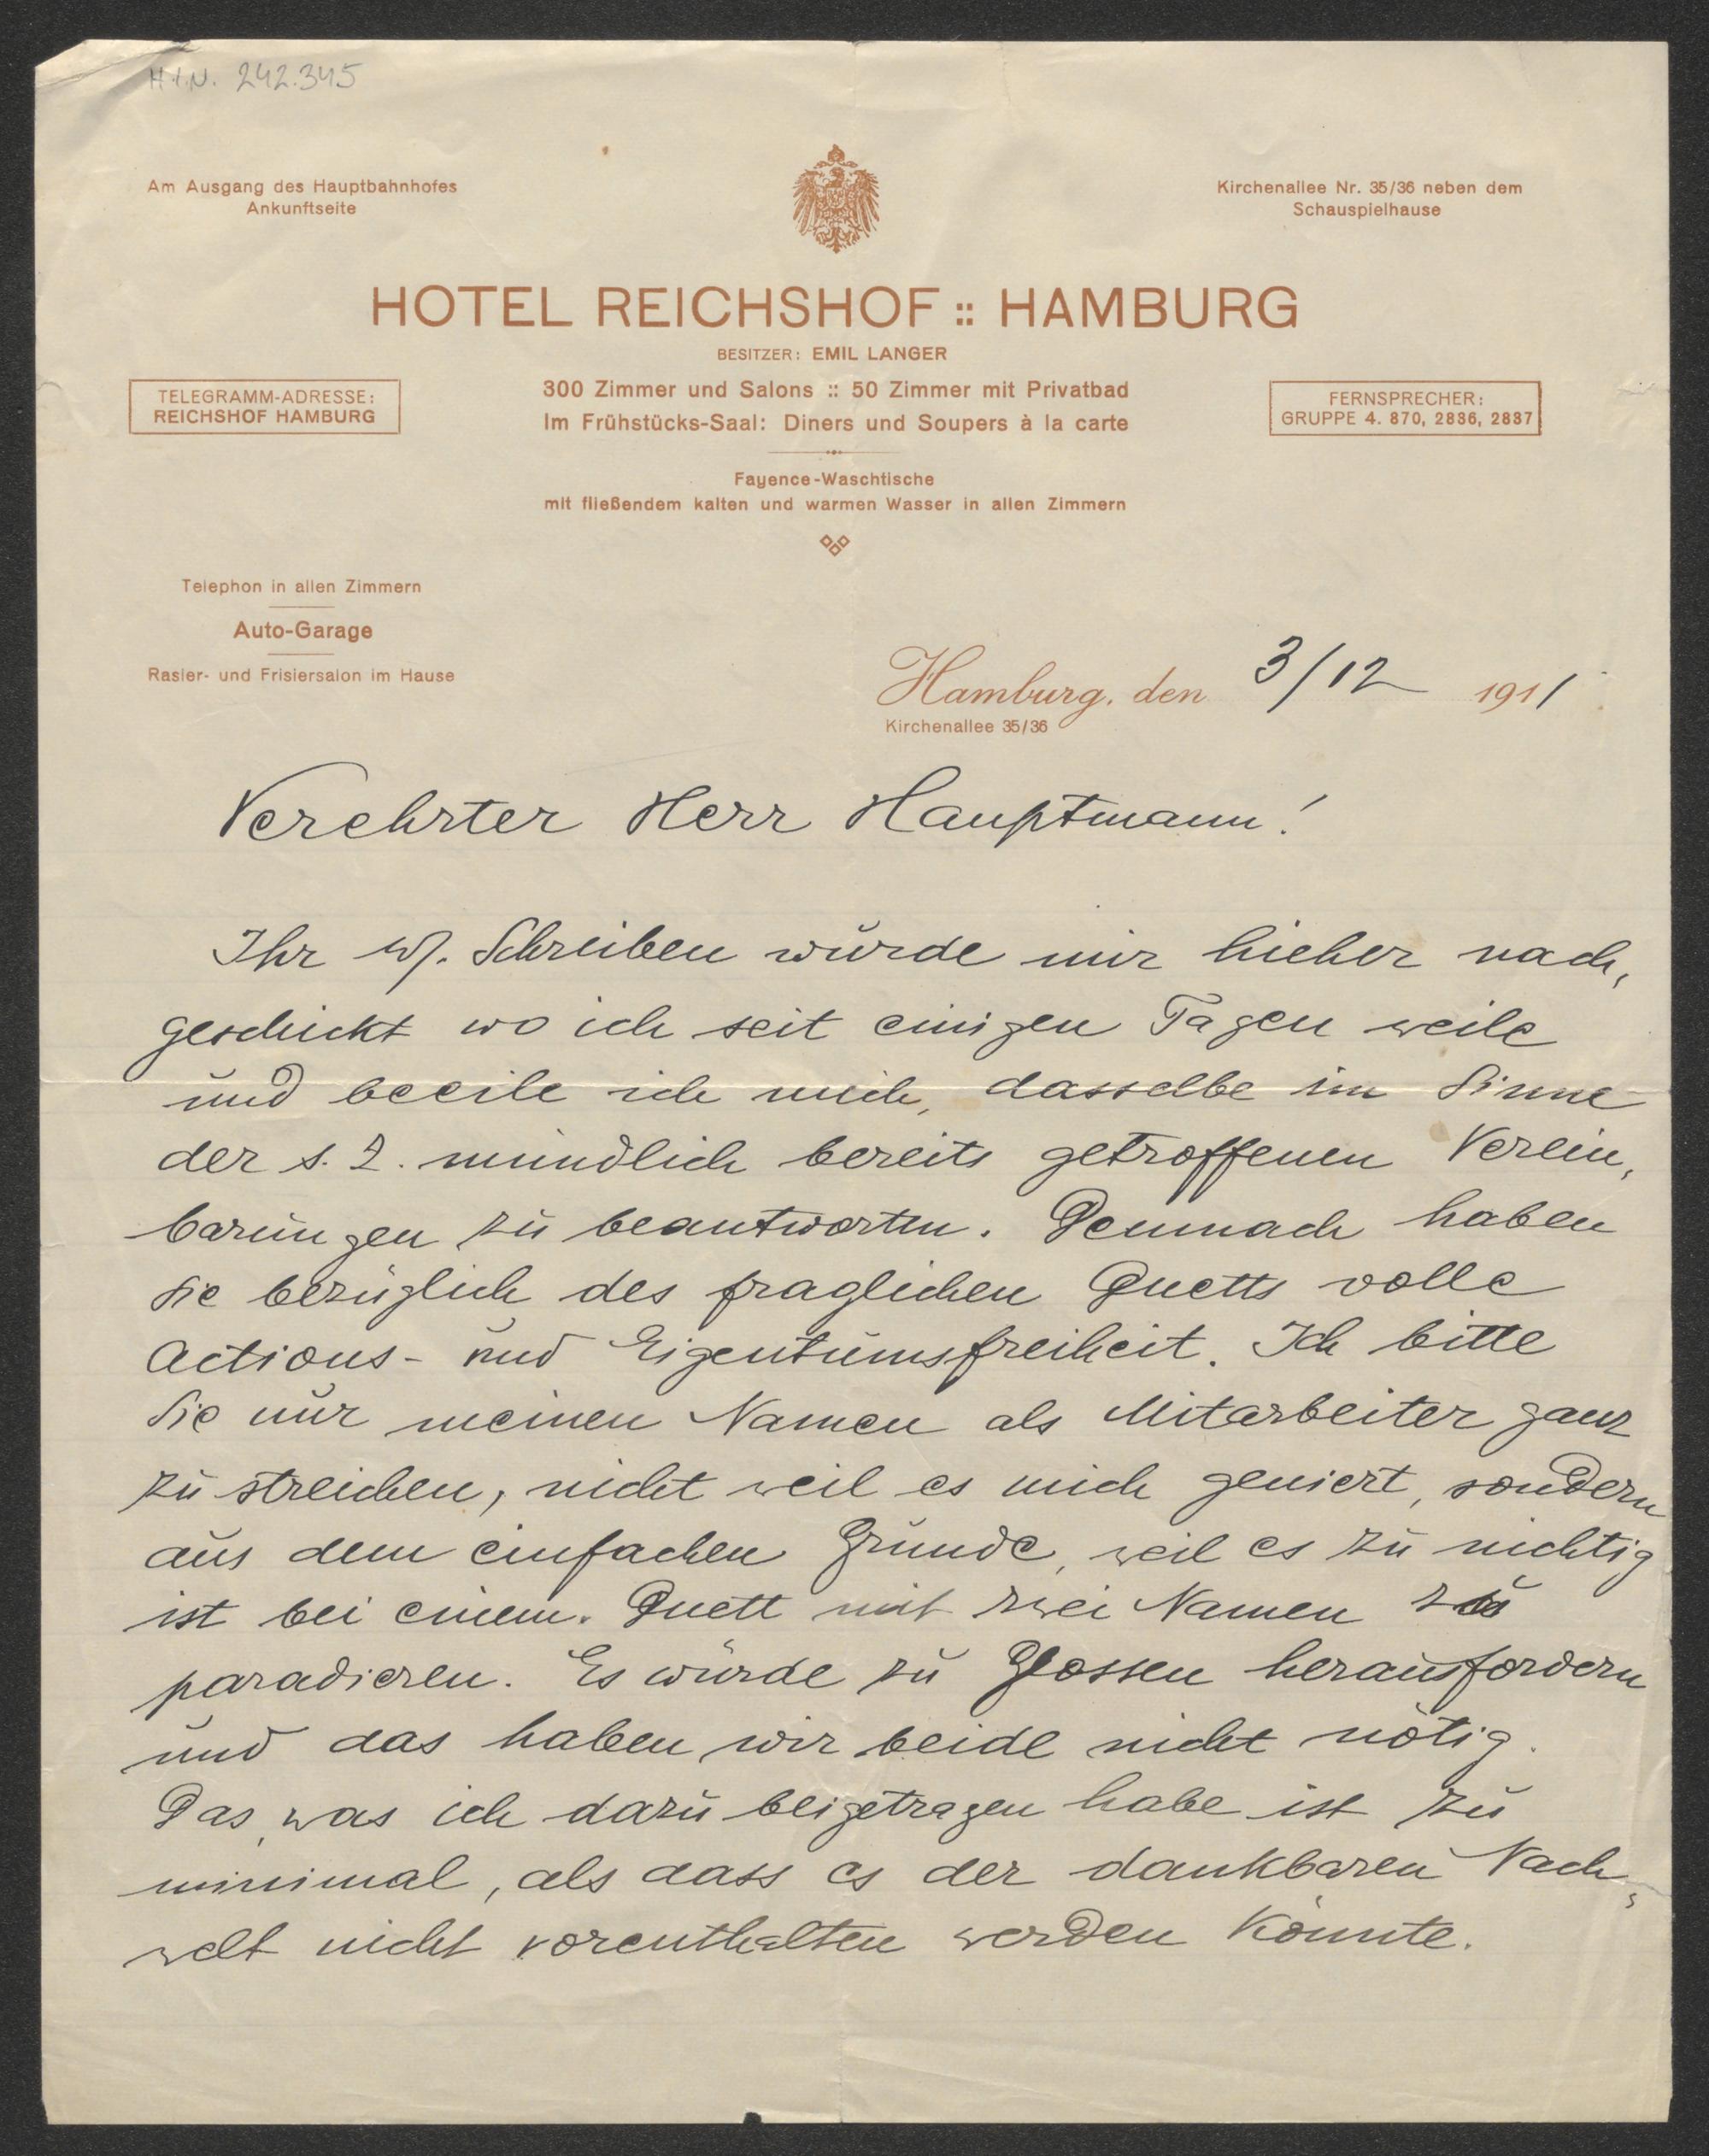 H.I.N. 242.345
Am Ausgang des Hauptbahnhofes
Ankunftseite
Kirchenallee Nr. 35/36 neben dem
Schauspielhause
HOTEL REICHSHOF :: HAMBURG
BESITZER: EMIL LANGER
TELEGRAMM-ADRESSE:
REICHSHOF HAMBURG
300 Zimmer und Salons :: 50 Zimmer mit Privatbad
Im Frühstücks-Saal: Diners und Soupers à la carte
FERNSPRECHER:
GRUPPE 4. 870, 2836, 2837
Fayence-Waschtische
mit fließendem kalten und warmen Wasser in allen Zimmern
Telephon in allen Zimmern
Auto-Garage
Rasier- und Frisiersalon im Hause
Hamburg, den 3/12 1911
Kirchenallee 35/36
Verehrter Herr Hauptmann!
Ihr w. Schreiben wurde mir hieher nach,
geschickt wo ich seit einigen Tagen weile
und beeile ich mich, dasselbe im Sinne
der s. Z. mündlich bereits getroffenen Verein,
barungen zu beantworten. Demnach haben
Sie bezüglich des fraglichen Duetts volle
Actions- und Eigentumsfreiheit. Ich bitte
Sie nur meinen Namen als Mitarbeiter ganz
zu streichen, nicht weil es mich geniert, sondern
aus dem einfachen Grunde, weil es zu nichtig
ist bei einem. Duett mit zwei Namen zu
paradieren. Es würde zu Glossen herausfordern
und das haben wir beide nicht nötig.
Das, was ich dazu beigetragen habe ist zu
minimal, als dass es der dankbaren Nach,
welt nicht vorenthalten werden könnte.